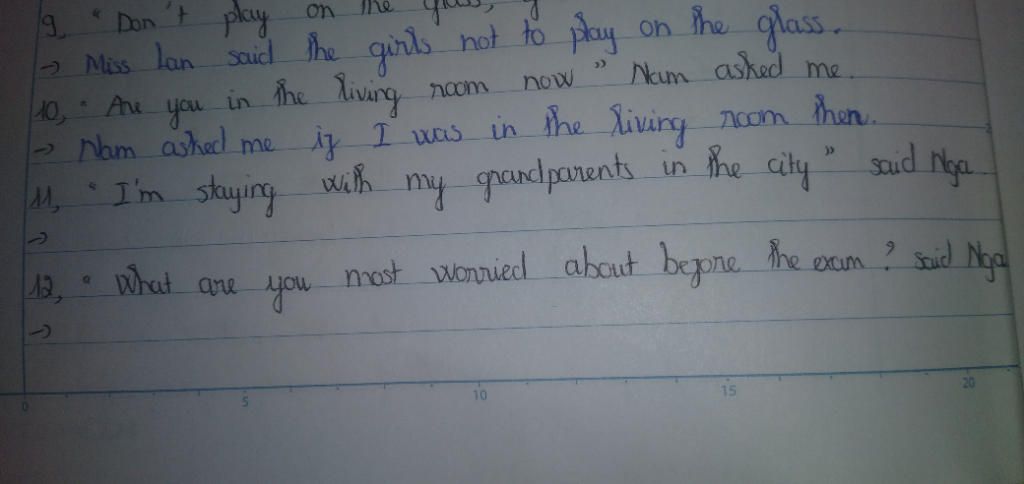 9, " Don't play on the glass,
→ Miss Lan said the girls not to play on the glass.
10, " Are you in the living room now " Nam asked me.
→ Nam asked me if I was in the living room then.
11, " I'm staying with my grandparents in the city " said Nga
→
12, " What are you most worried about before the exam ? said Nga
→
0 5 10 15 20